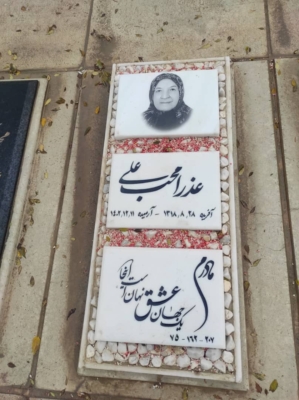 عذرا محب علی
آفریده ۱۳۱۸,۸,۲۸ - آرمیده ۱۴۰۲,۱۲,۱۱
مادرم
یک جهان عشق نهان است اینجا
۷۵ - ۱۶۲ - ۲۰۷